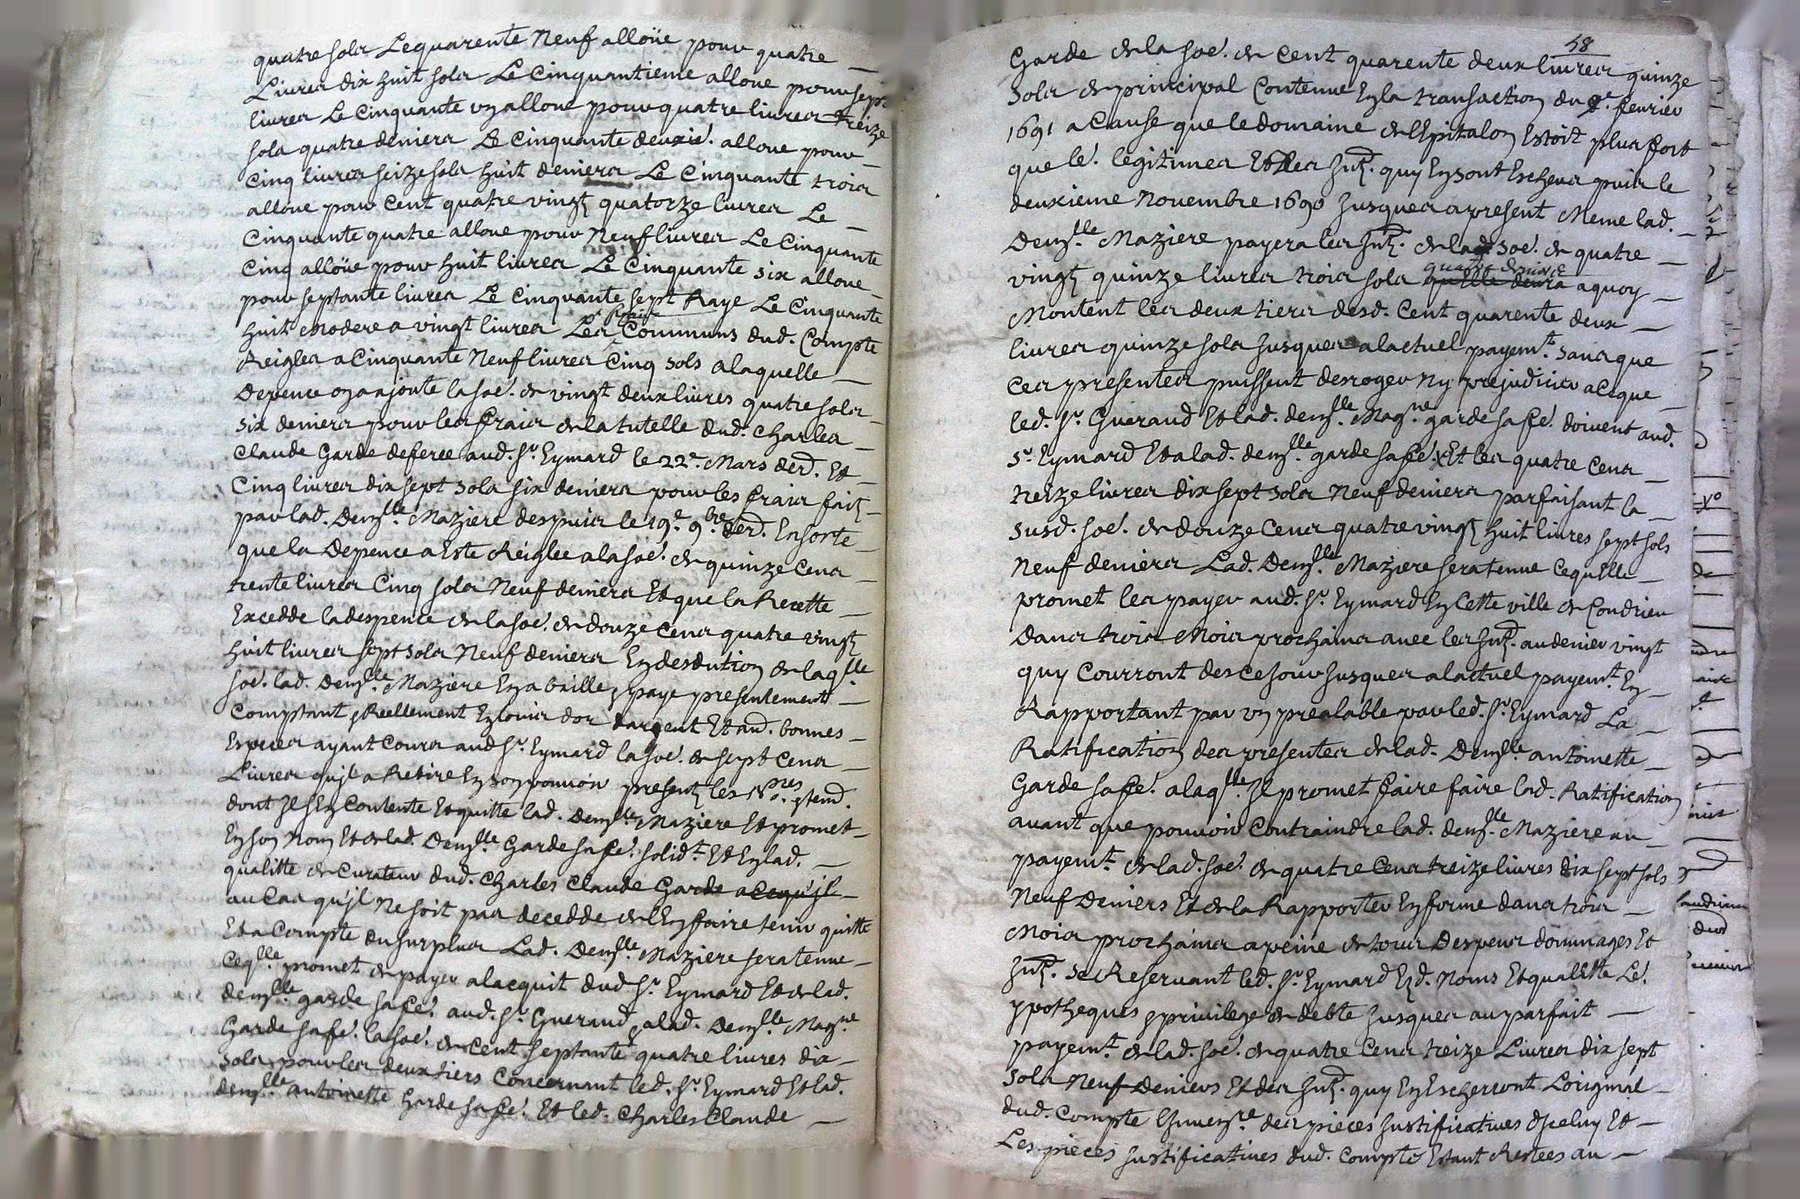 quatre sols Le quarente Neuf alloüe pour quatre
Livres dix huit sols Le Cinquantieme alloue pour sept
livres Le Cinquante un alloue pour quatre livres treize
sols quatre deniers Le Cinquante deuxie. alloue pour
Cinq livres seize sols huit deniers Le Cinquante trois
alloue pour Cent quatre vingt quatorze livres Le
Cinquante quatre alloue pour Neuf livres Le Cinquante
Cinq alloüe pour huit livres Le Cinquante six alloue
pour septante livres Le Cinquante sept Raye Le Cinquante
huit Modere a vingt livres Les frais Communs dud. Compte
Reigles a Cinquante Neuf livres Cinq sols a laquelle
Depence on ajoute la soe. de vingt deux livres quatre sols
six deniers pour les frais de la tutelle dud. Charles
Claude Garde deferee aud. Sr. Eymard le 22e. Mars derd. Et
Cinq livres dix sept sols six deniers pour les frais faitz
par lad. Demlle. Maziere despuis le 19e. 9bre derd. En sorte
que la Depence a Este Reiglee a la soe. de quinze Cens
trente livres Cinq sols Neuf deniers Et que la Recette
Excedde la despence de la soe. de douze Cens quatre vingtz
huit livres sept sols Neuf deniers En desdution de laqlle
soe. lad. Demlle. Maziere En a baille, paye presentement
Comptant, Reellement En louis d'or d'argent Et au. bonnes
Especes ayant Cours aud Sr. Eymard la soe. de sept Cens
Livres qu'jl a Retire En son pouvoir presentz les
dont jl s'En Contente Et quitte lad. Demlle. Maziere Et promet
En son Nom Et de lad. Demlle Garde sa fe. solidt. Et En lad.
qualitte de Curateur dud. Charles Claude Garde a Ce qu'jl
au Cas qu'jl Ne soit pas decedde de l'En faire tenir quitte
Et a Compte du surplus Lad. Demlle. Maziere sera tenue
Ceqlle promet de payer a lacquit dud Sr. Eymard Et de lad.
demlle. garde sa fe. aud. Sr. Gueraud, a lad. Demlle Magne
Garde sa fe. la soe. de Cent septante quatre livres dix
sols pour les deux tiers Concernant led. Sr. Eymard Et lad.
demlle antoinette Garde sa fe. Et led. Charles Claude
58
Garde de la soe. de Cent quarente deux livres quinze
sols de principal Contenue En la transaction du 2e. fevrier
1691 a Cause que le domaine de lhpitalon Estoit plus fort
que le. legitimes Et les jntz. quy En sont Escheus puis le
deuxieme Novembre 1690 jusques a present Meme lad.
Demlle Maziere payera les jntz. de lad. soe. de quatre
vingtz quinze livres trois sols quatre deniers a quoy
Montent les deux tiers desd. Cent quarente deux
livres quinze sols jusques a lactuel payemt. sans que
Ces presentes puissent desroger Ny prejudicier a Ce que
led. Sr. Gueraud Et lad. demlle. Magne garde sa fe. doivent aud.
Sr. Eymard Et a lad. demlle garde sa fe. Et les quatre Cens
treize livres dix sept sols Neuf deniers parfaisant la
susd. soe. de douze Cens quatre vingtz huit livres sept sols
Neuf deniers Lad. Demlle Maziere sera tenue Ce qu'Elle
promet les payer aud. Sr. Eymard En Cette ville de Condrieu
Dans trois Mois prochains avec les jntz. au denier vingt
quy Courront des Ce jour jusques a lactuel payemt. En
Rapportant par un prealable par led. Sr. Eymard La
Ratification des presentes de lad. Demlle antoinette
Garde sa fe. a laqlle. jl promet faire faire lad. Ratification
avant que pouvoir Contraindre lad. demlle Maziere au
payemt. de lad. soe. de quatre Cens treize livres dix sept sols
Neuf Deniers Et de la Rapporter En forme dans trois
Mois prochains a peine de tous Despens dommages Et
jntz. se Reservant led. Sr. Eymard Esd. Noms Et qualitte Le.
ypotheques, privilege de debte jusques au parfait
payemt. de lad. soe. de quatre Cens treize Livres dix sept
sols Neuf Deniers Et des jntz. quy En Escherront Loriginal
dud. Compte des pieces justificatives d'jceluy Et
Les pieces justificatives dud. Compte Estant Restees au